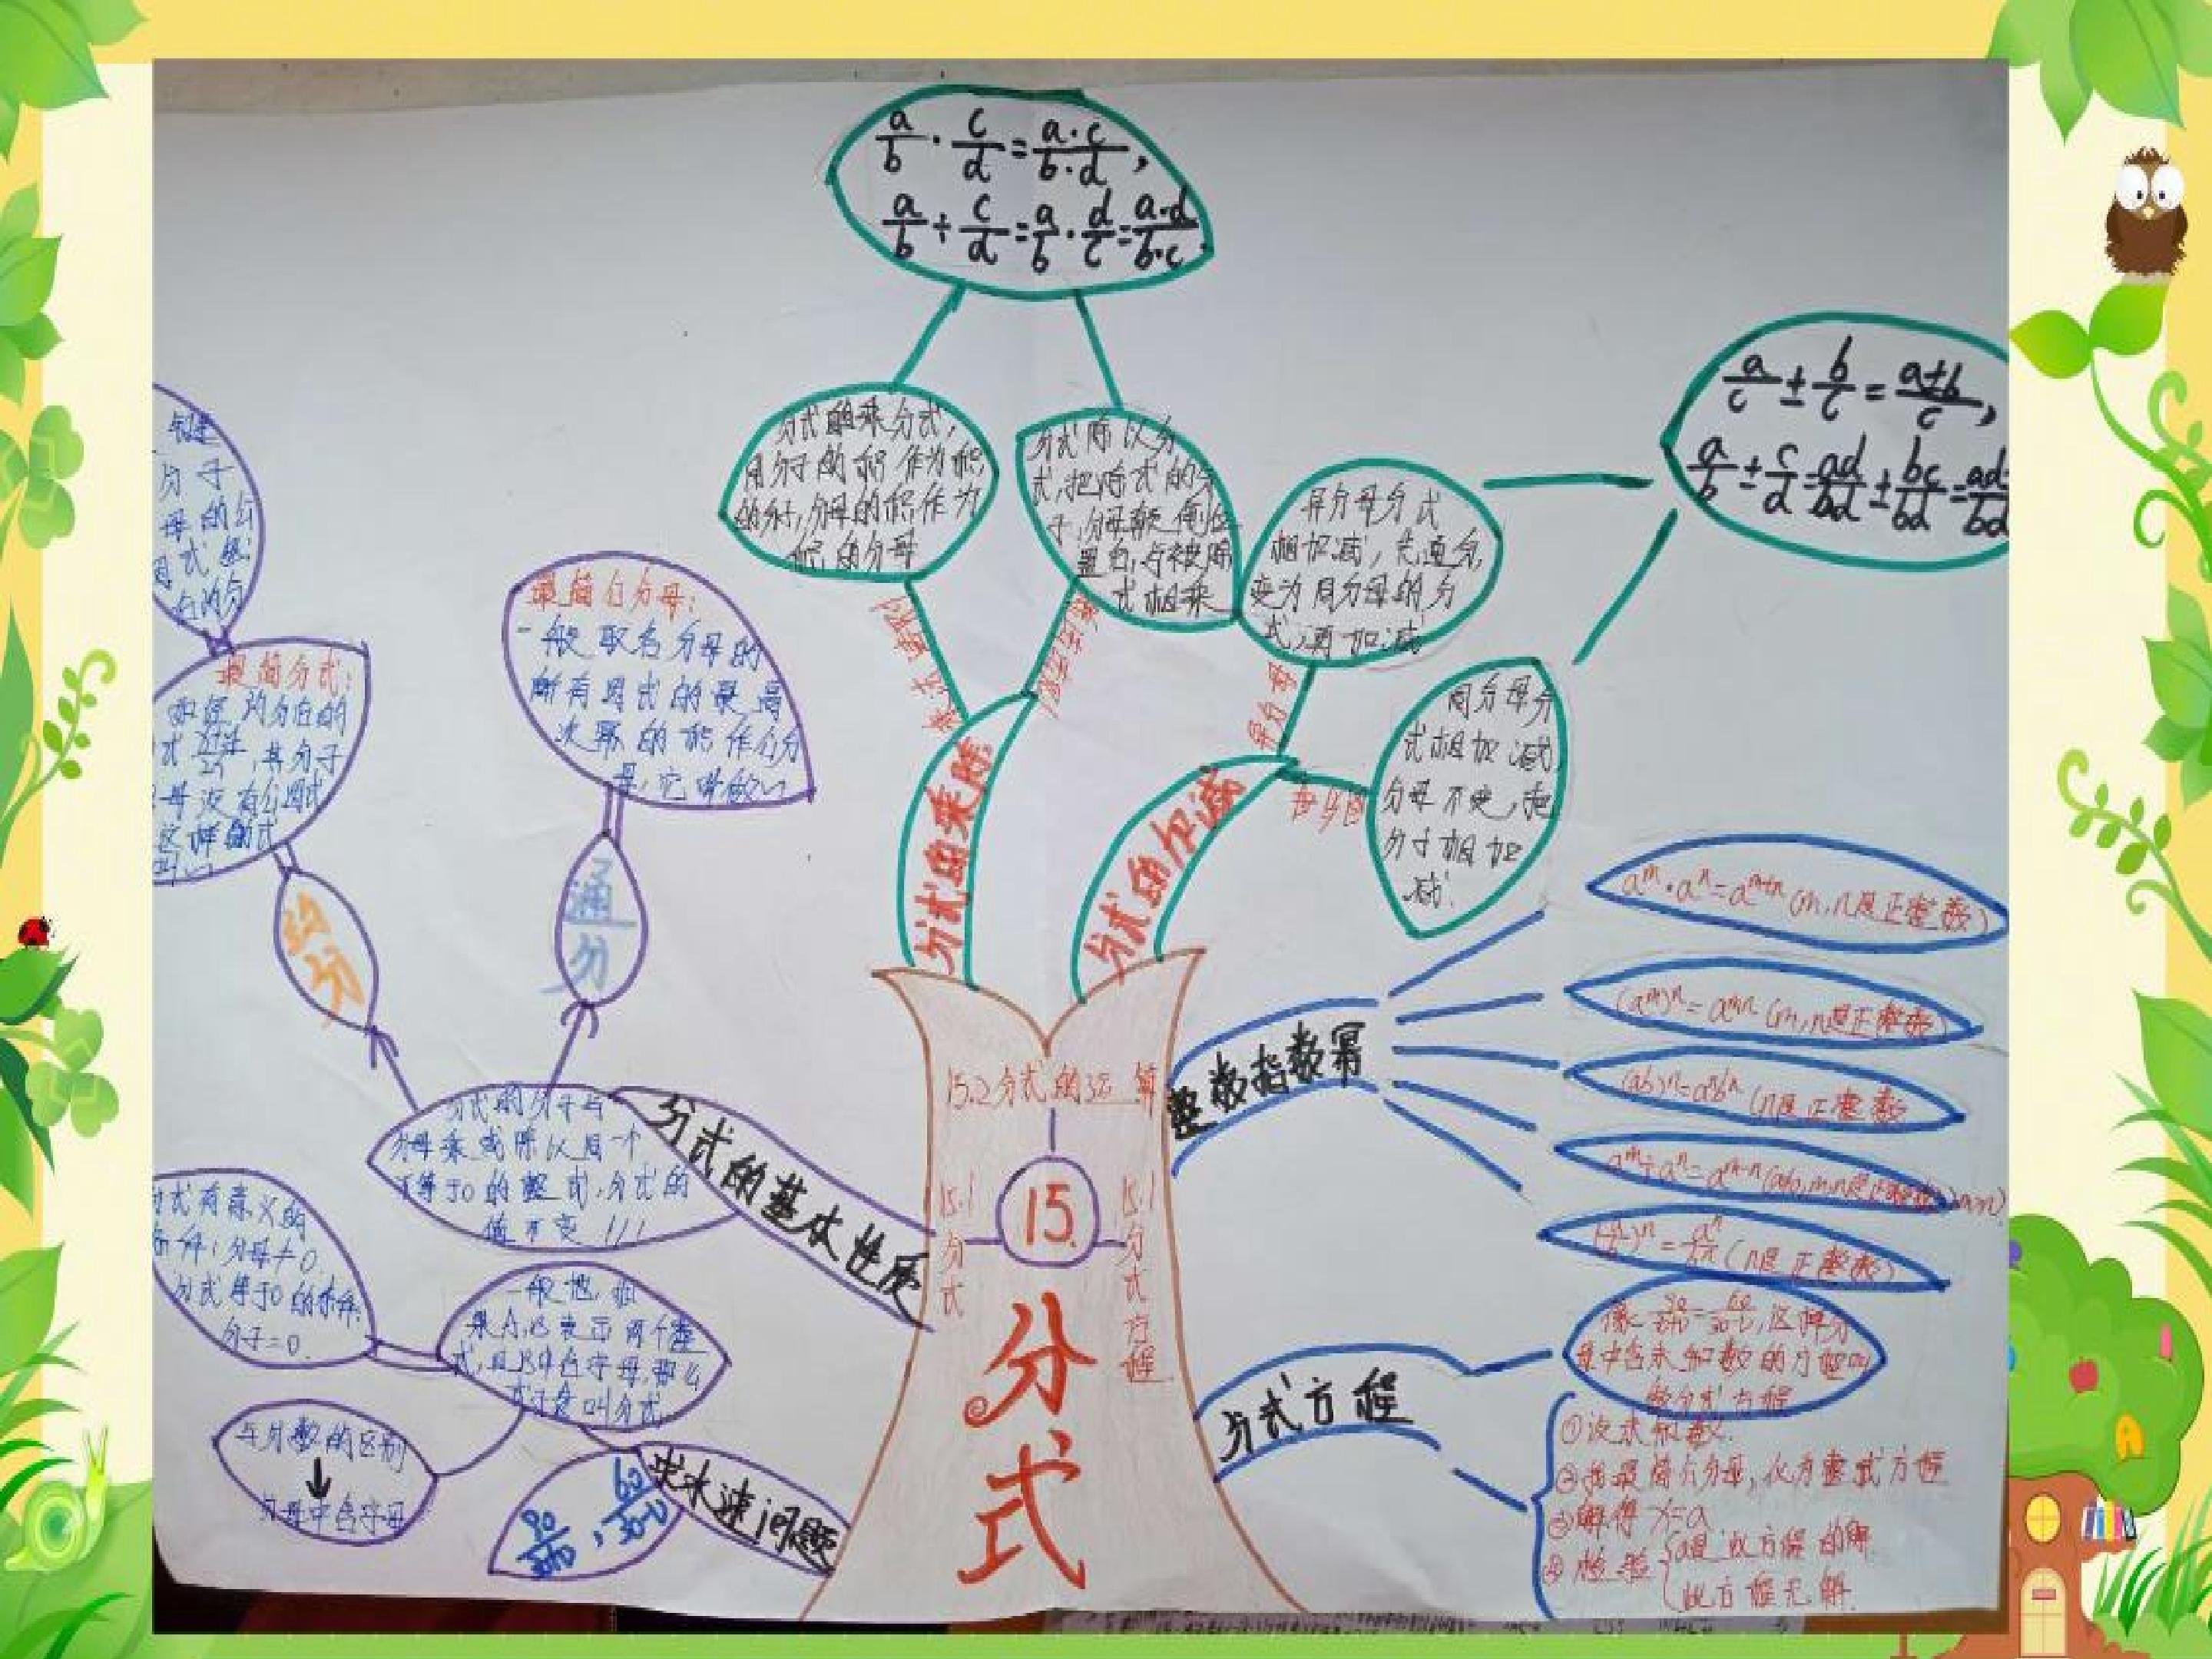 a/b · c/d = a·c/b·d,
a/b ÷ c/d = a/b · d/c = a·d/b·c.
分式的乘分式,
用分子的积作为积
的分子,分母的积作为
积的分母
分式除以分
式,把除式的分
子,分母颠倒位
置后,与被除
式相乘
乘法法则
异分母分式
相加减,先通分,
变为同分母的分
式,再加减
异分母
同分母分
式相加减,
分母不变,把
分子相加
减.
同分母
a/c ± b/c = a±b/c,
a/b ± c/d = ad/bd ± bc/bd = ad
bd
分式的乘除
分式的加减
关键
分子
母的公
因式
最简分式:
约分后的
式 ,其分子
母没有公因式
这样的式
叫~
约分
最简公分母:
一般取各分母的
所有因式的最高
次幂的积作公分
母,它叫做~
通分
分式的分子与
分母乘或除以同一个
不等于0的整式,分式的
值不变!!!
分式的基本性质
分式有意义的
条件:分母≠0.
分式等于0的条件:
分子=0.
一般地,如
果A,B表示两个整
式,且B中含字母,那么
式子 叫分式.
与分数的区别
↓
分母中含字母
90/30+v , 60/30-v
求水速问题
15.2分式的运算
15.
15.1
分
式
15.1
分
式
方
程
分
式
整数指数幂
aᵐ·aⁿ=aᵐ⁺ⁿ(m,n是正整数)
(aᵐ)ⁿ=aᵐⁿ(m,n是正整数)
(ab)ⁿ=aⁿbⁿ(n是正整数
aᵐ÷aⁿ=aᵐ⁻ⁿ(a≠0,m,n是正整数,m>n)
(a/b)ⁿ=aⁿ/bⁿ(n是正整数)
分式方程
像 90/30+v = 60/30-v,这样分
母中含未知数的方程叫
做分式方程
①设未知数.
②找最简公分母,化为整式方程
③解得x=a
④检验{a是此方程的解
此方程无解.